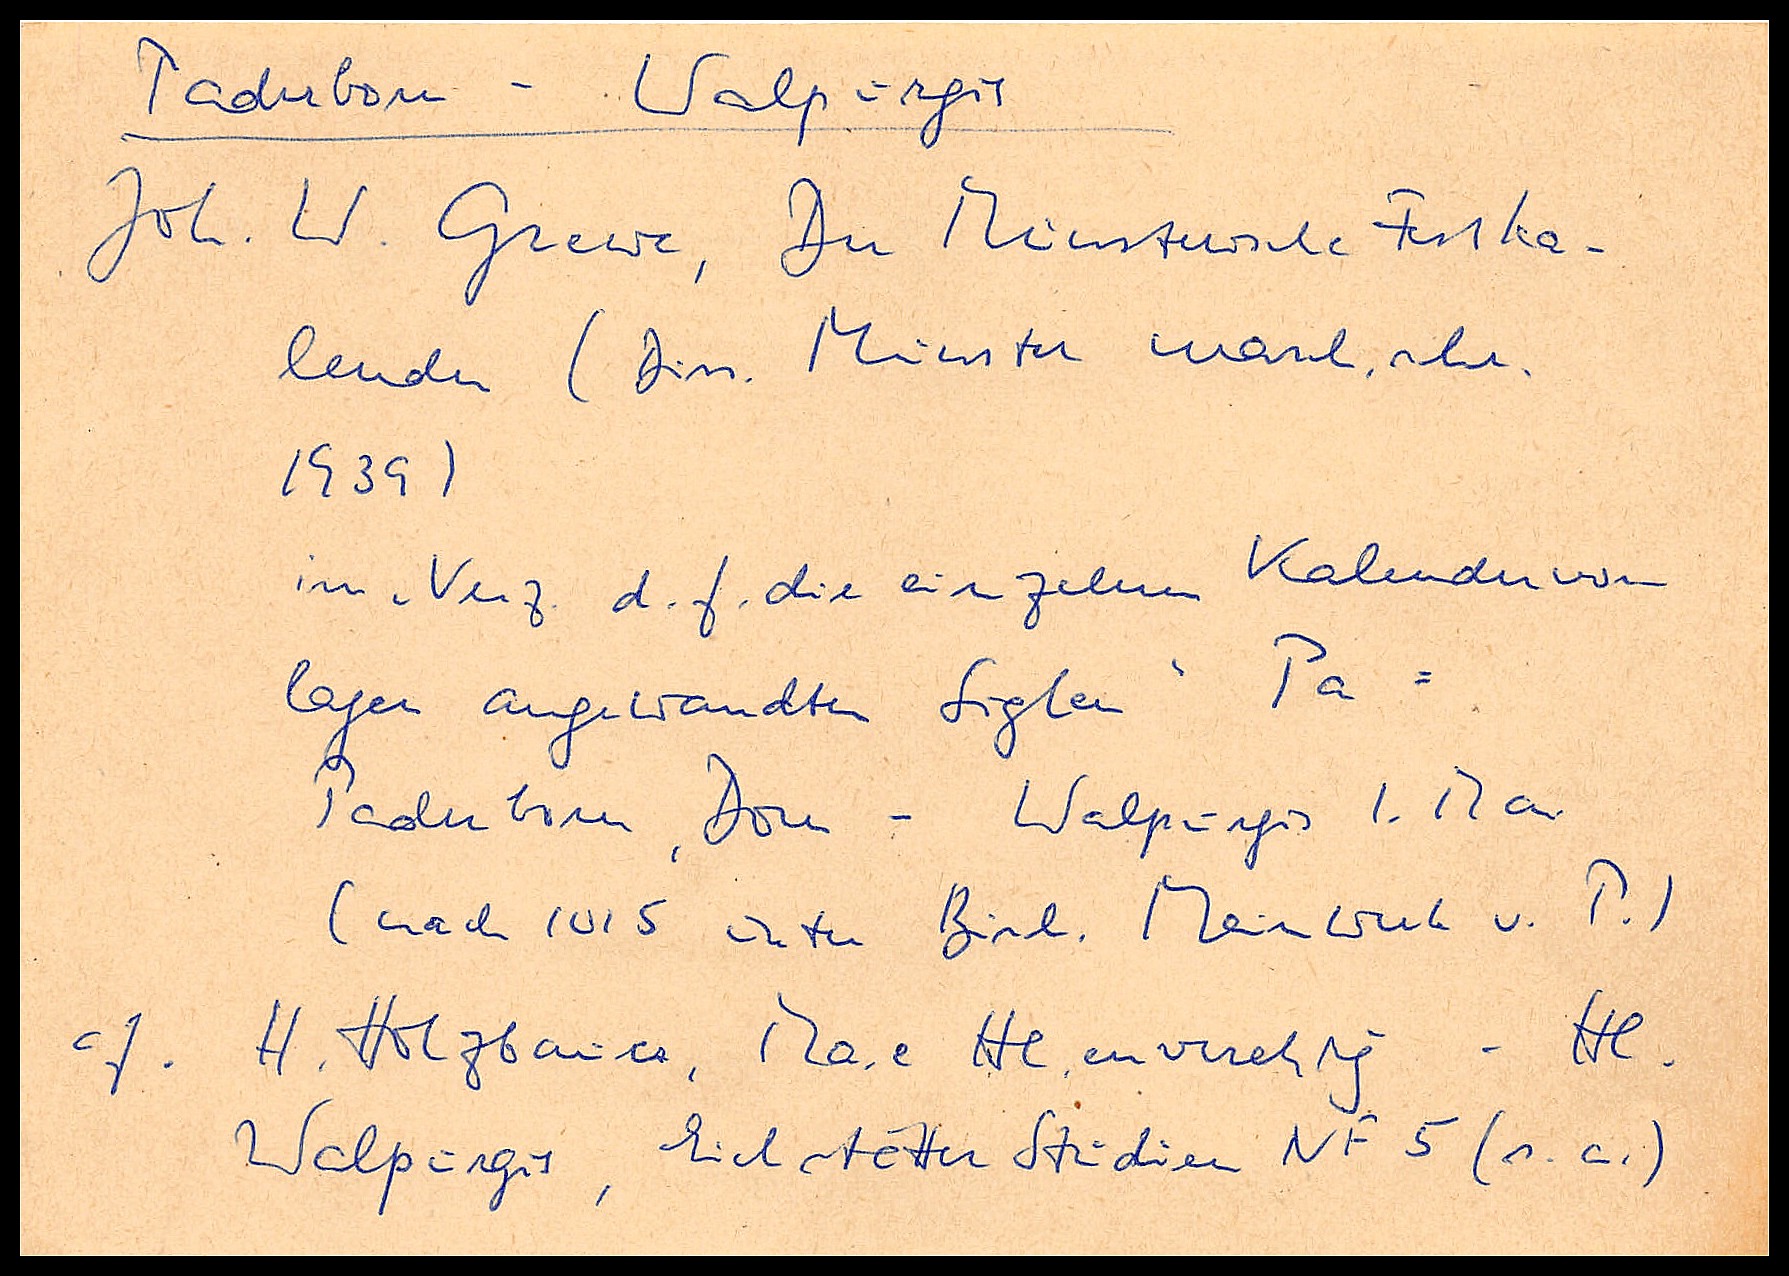 Paderborn - Walpurgis
Joh. W. Grewe, Der Münstersche Festka-
lender (Diss. Münster masch.schr.
1939)
im „Verz. d. f. die einzelnen Kalendervor
lagen angewandten Siglen" Pa =
Paderborn, Dom - Walpurgis 1. Mai
(nach 1015 unter Bisch. Meinwerk v. P.)
cf. H. Holzbauer, Ma. Hl.enverehrg - Hl.
Walpurgis, Eichstätter Studien NF 5 (s. a.)